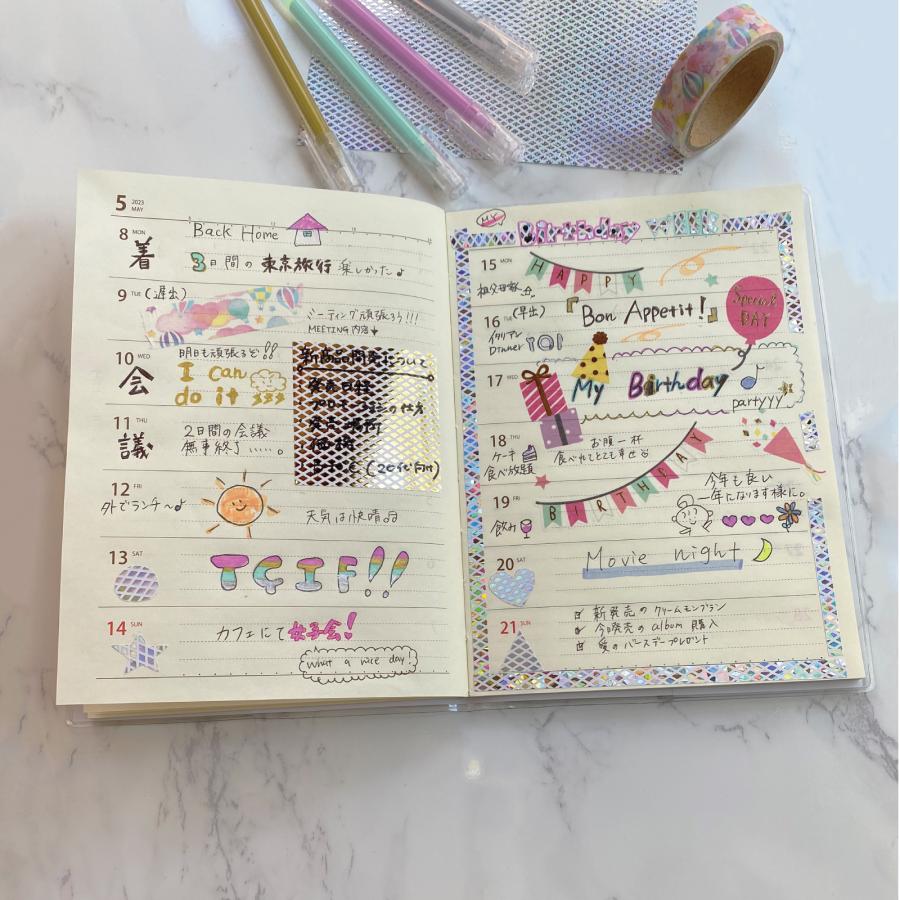 5 2023 MAY
8 MON
着
Back Home
3日間の東京旅行 楽しかった♪
9 TUE (遅出)
ミーティング頑張ろう!!!
MEETING内容↓
10 WED
会
明日も頑張るぞ!!
I can
do it
新商品開発について
発売日程
発売場所
価格
(20代向け)
11 THU
議
2日間の会議
無事終了.....。
12 FRI
外でランチ〜♪
天気は快晴♫
13 SAT
TGIF!!
14 SUN
カフェにて女子会!
What a nice day!
MY Birthday
15 MON
HAPPY
祖父母宅
16 TUE (早出)
『Bon Appetit!』
イタリアン
Dinner
Special
DAY
17 WED
My Birthday
partyyy
18 THU
ケーキ
食べ放題
お腹一杯
食べれてとても幸せ
BIRTHDAY
19 FRI
飲み
今年も良い
一年になります様に。
20 SAT
Movie night
21 SUN
新発売のクリームモンブラン
今日発売のalbum購入
愛のバースデープレゼント